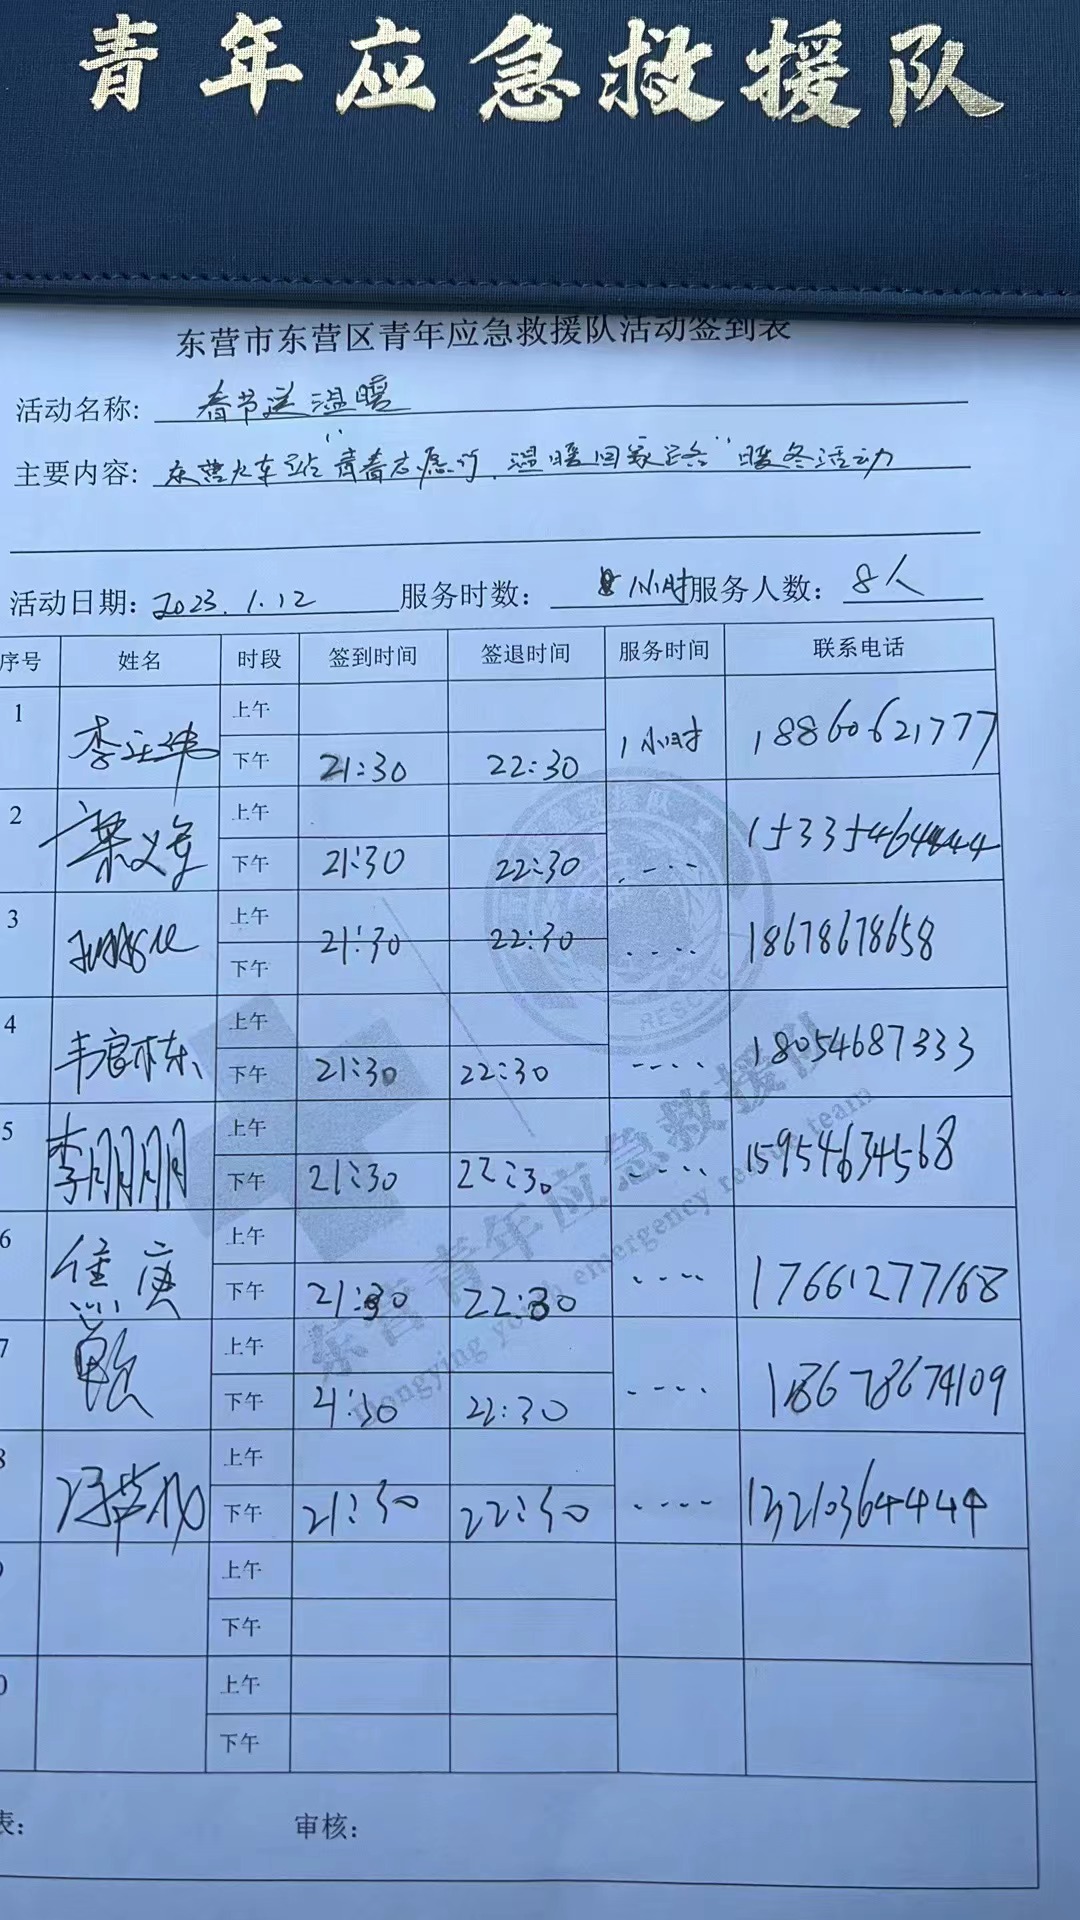 青年应急救援队
东营市东营区青年应急救援队活动签到表
活动名称: 春节送温暖
主要内容: 东营火车站"青春志愿行.温暖回家路"暖冬活动
活动日期: 2023.1.12 服务时数: 1小时 服务人数: 8人
序号 姓名 时段 签到时间 签退时间 服务时间 联系电话
1 上午
下午 21:30 22:30 1小时 18860621777
2 上午
下午 21:30 22:30 ---- 15335464444
3 上午 21:30 22:30 ---- 18678678658
下午
4 韦宿栋 上午
下午 21:30 22:30 ---- 18054687333
5 李朋朋 上午
下午 21:30 22:30 ---- 15954634568
6 上午
下午 21:30 22:30 ---- 17661277168
7 上午
下午 21:30 22:30 ---- 18678674109
8 上午
下午 21:30 22:30 ---- 13210364444
上午
下午
0 上午
下午
表: 审核:
RESCUE
东营青年应急救援队
Dongying youth emergency rescue team